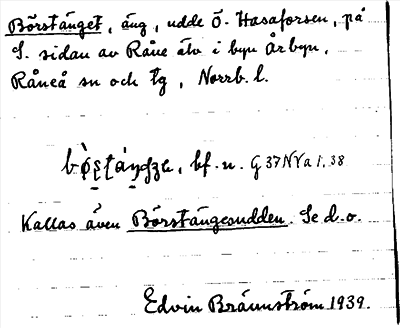 Börstänget, äng, udde Ö. Hasaforsen, på
S. sidan av Råne älv i byn Årbyn,
Råneå sn och tg, Norrb. l.
bf. n. G 37 NYa 1, 38
Kallas även Börstängesudden. Se d.o.
Edvin Brännström 1939.